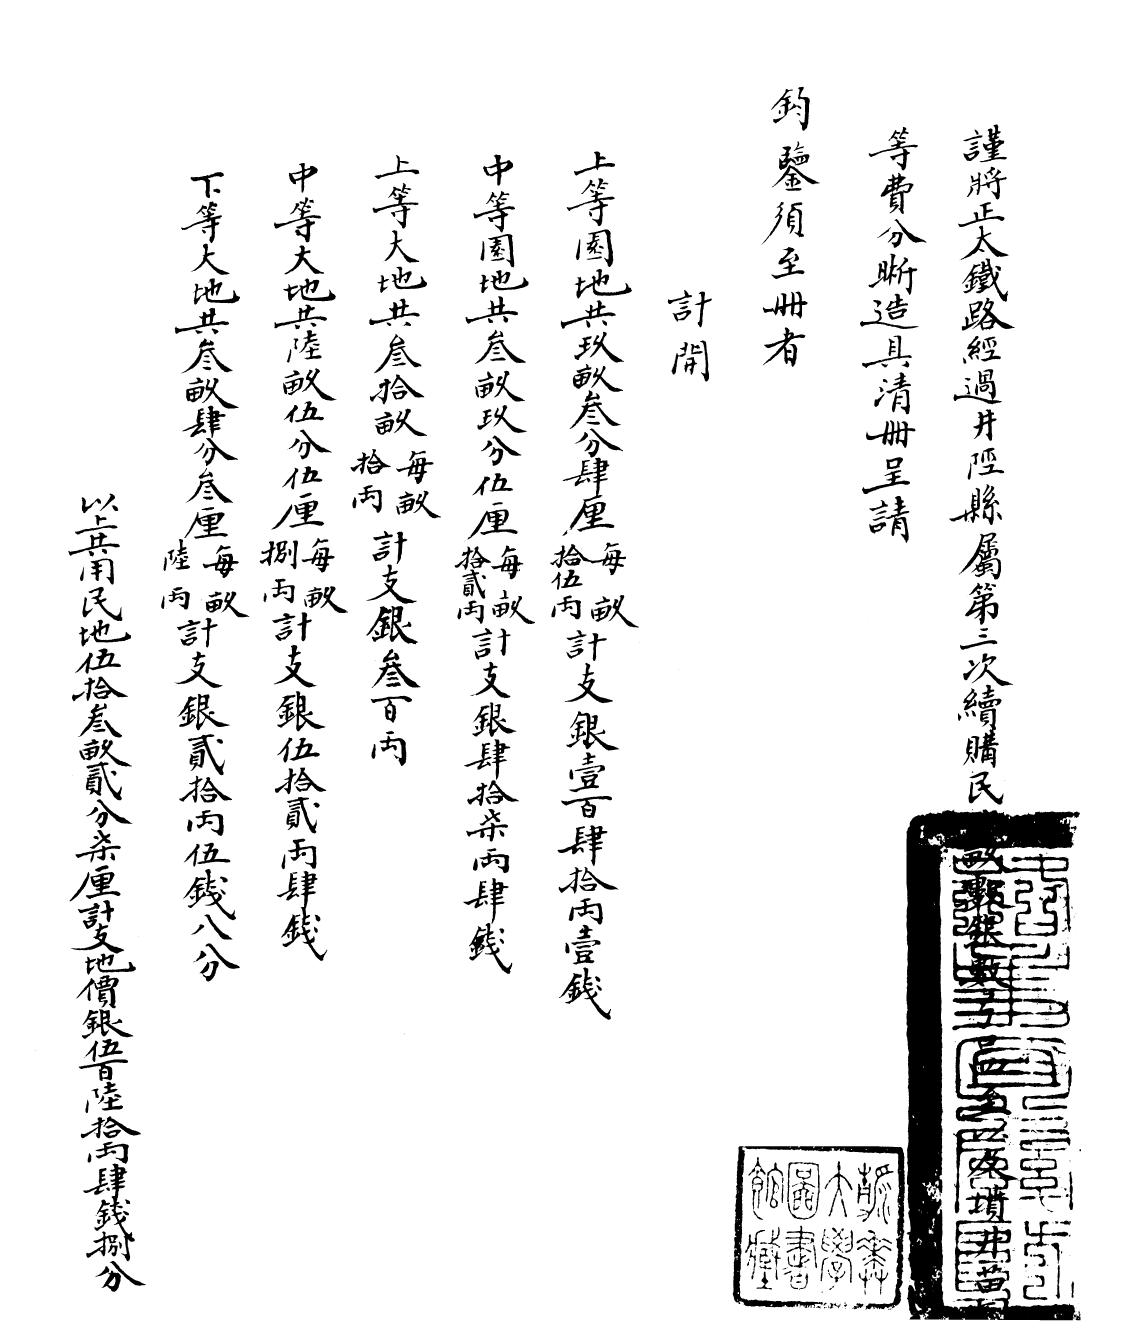 謹將正太鐵路經過井陘縣屬第三次續購民畝數銀數以及墳井苗
等費分晰造具清冊呈請
鈞鑒須至冊者
計開
上等園地共玖畝叁分肆厘每畝拾伍兩計支銀壹百肆拾兩壹錢
中等園地共叁畝玖分伍厘每畝拾貳兩計支銀肆拾柒兩肆錢
上等大地共叁拾畝每畝拾兩計支銀叁百兩
中等大地共陸畝伍分伍厘每畝捌兩計支銀伍拾貳兩肆錢
下等大地共叁畝肆分叁厘每畝陸兩計支銀貳拾兩伍錢八分
以上共用民地伍拾叁畝貳分柒厘計支地價銀伍百陸拾兩肆錢捌分
大學
圖書
館藏